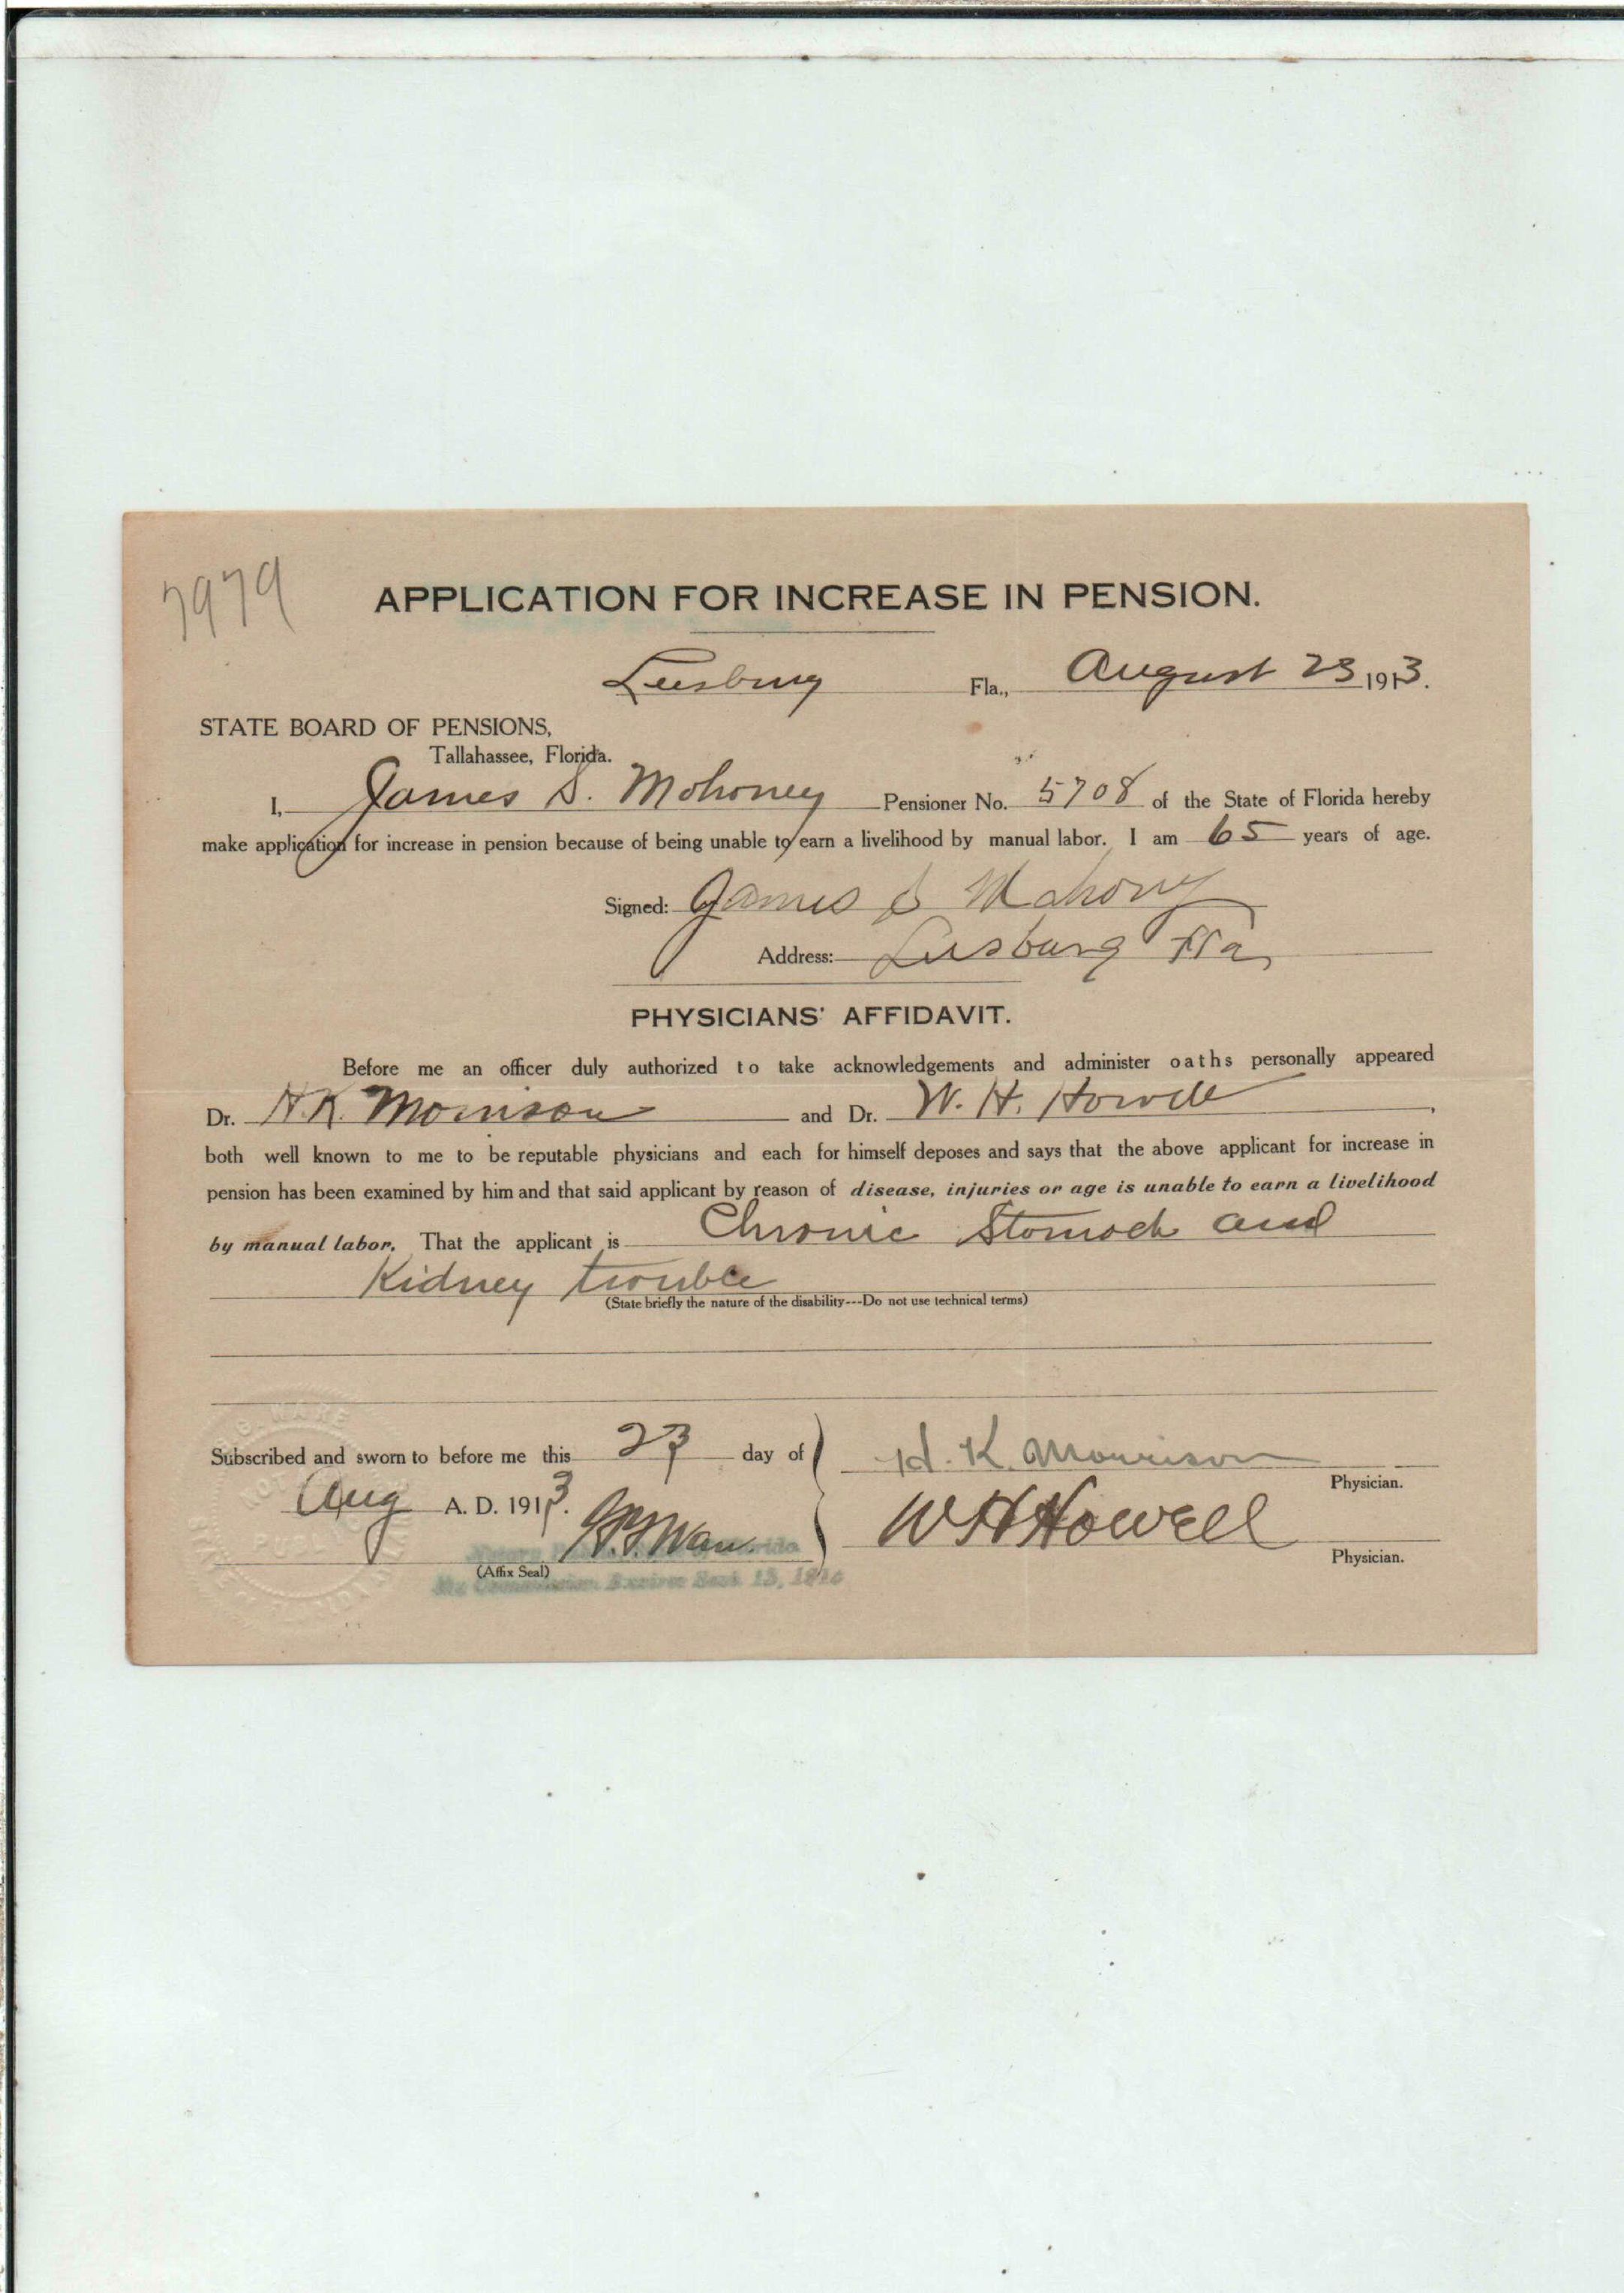 7979
APPLICATION FOR INCREASE IN PENSION.
Leesburg Fla., August 23 1913.
STATE BOARD OF PENSIONS,
Tallahassee, Florida.
I, James S. Mohoney Pensioner No. 5708 of the State of Florida hereby
make application for increase in pension because of being unable to earn a livelihood by manual labor. I am 65 years of age.
Signed: James S Mahony
Address: Leesburg Fla,
PHYSICIANS' AFFIDAVIT.
Before me an officer duly authorized to take acknowledgements and administer oaths personally appeared
Dr. H. K. Morrison and Dr. W. H. Howell,
both well known to me to be reputable physicians and each for himself deposes and says that the above applicant for increase in
pension has been examined by him and that said applicant by reason of disease, injuries or age is unable to earn a livelihood
by manual labor. That the applicant is Chronic Stomach and
Kidney trouble
(State briefly the nature of the disability---Do not use technical terms)
Subscribed and sworn to before me this 23 day of H. K. Morrison
Physician.
Aug A. D. 1913. W H Howell
Physician.
(Affix Seal)
My Commission Expires Sept. 13, 1916